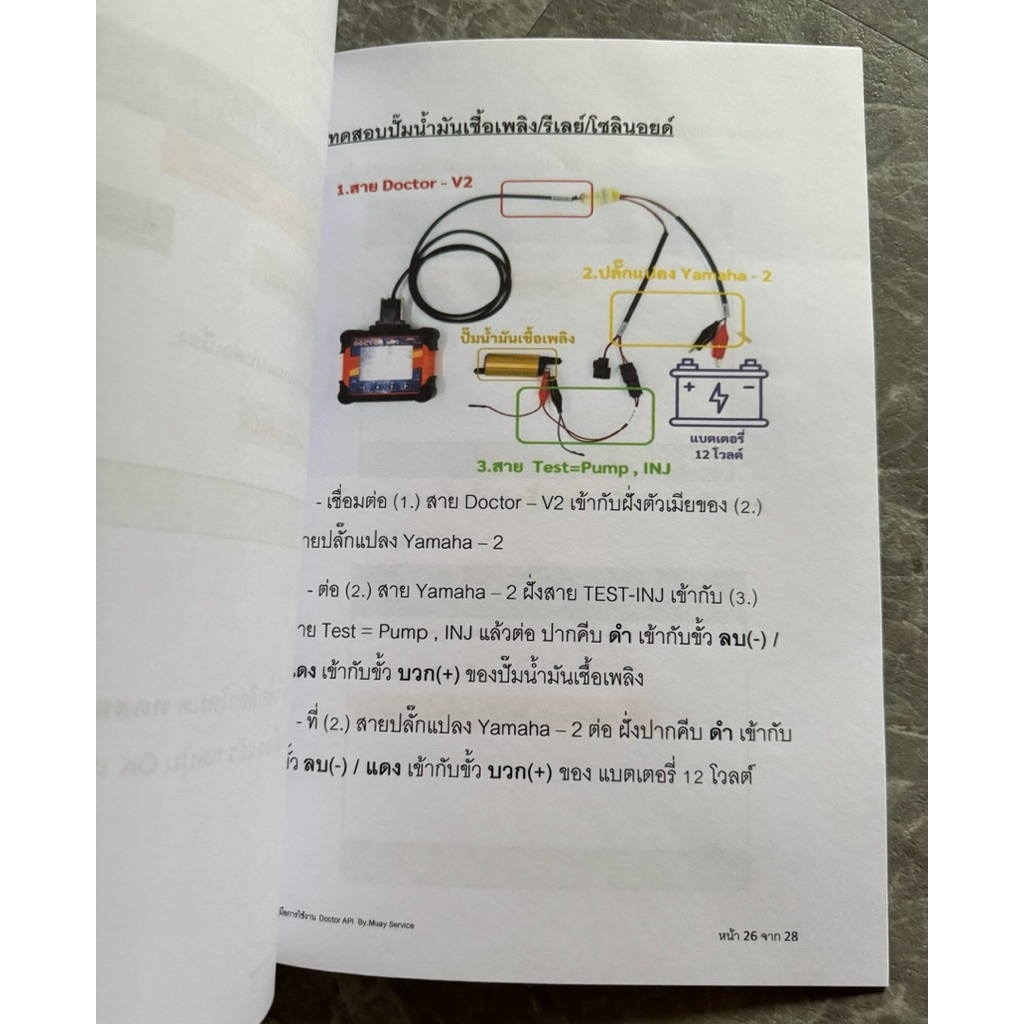 ทดสอบปั๊มน้ำมันเชื้อเพลิง/รีเลย์/โซลินอยด์
1.สาย Doctor - V2
2.ปลั๊กแปลง Yamaha - 2
ปั๊มน้ำมันเชื้อเพลิง
แบตเตอรี่
12 โวลต์
3.สาย Test=Pump , INJ
- เชื่อมต่อ (1.) สาย Doctor – V2 เข้ากับฝั่งตัวเมียของ (2.)
ายปลั๊กแปลง Yamaha – 2
- ต่อ (2.) สาย Yamaha – 2 ฝั่งสาย TEST-INJ เข้ากับ (3.)
าย Test = Pump , INJ แล้วต่อ ปากคีบ ดำ เข้ากับขั้ว ลบ(-) /
ดง เข้ากับขั้ว บวก(+) ของปั๊มน้ำมันเชื้อเพลิง
- ที่ (2.) สายปลั๊กแปลง Yamaha – 2 ต่อ ฝั่งปากคีบ ดำ เข้ากับ
ั้ว ลบ(-) / แดง เข้ากับขั้ว บวก(+) ของ แบตเตอรี่ 12 โวลต์
มือการใช้งาน Doctor API By.Muay Service
หน้า 26 จาก 28